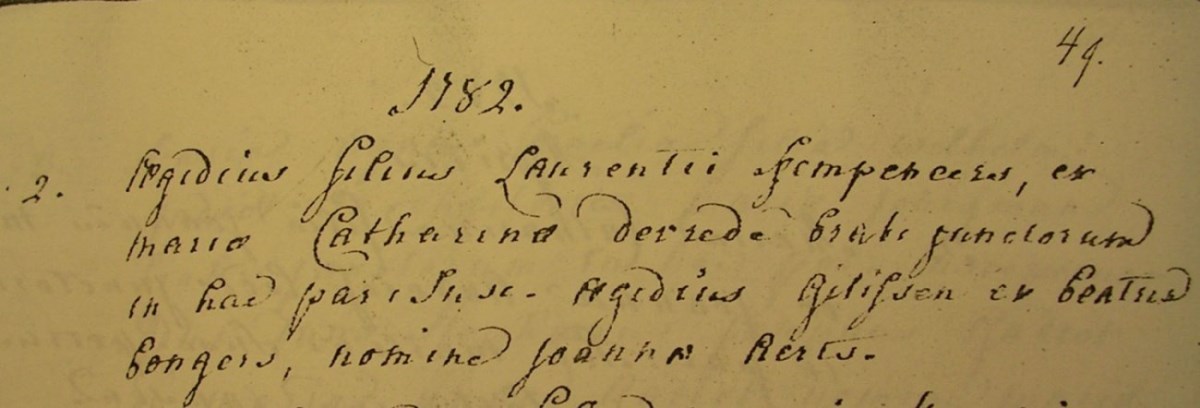 49.
1782.
2. Ægidius filius Laurentii Hempeneers, et
mariæ Catharinæ derrede
in hac par Ægidius Gilissen et beatrix
bongers, nomine Joannæ Aerts.